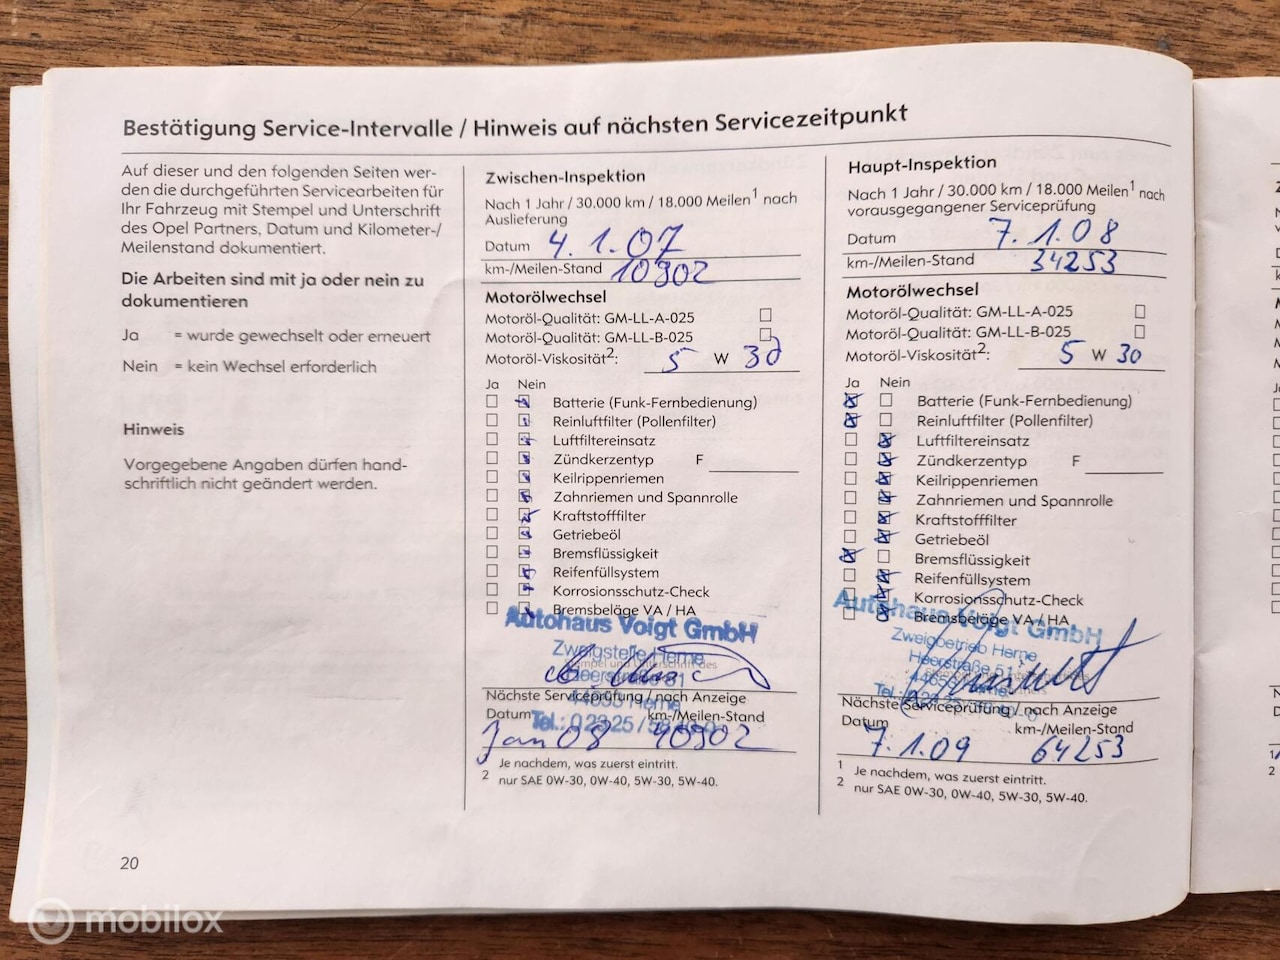 Bestätigung Service-Intervalle / Hinweis auf nächsten Servicezeitpunkt
Auf dieser und den folgenden Seiten wer-
den die durchgeführten Servicearbeiten für
Ihr Fahrzeug mit Stempel und Unterschrift
des Opel Partners, Datum und Kilometer-/
Meilenstand dokumentiert.
Die Arbeiten sind mit ja oder nein zu
dokumentieren
Ja = wurde gewechselt oder erneuert
Nein = kein Wechsel erforderlich
Hinweis
Vorgegebene Angaben dürfen hand-
schriftlich nicht geändert werden.
20
Zwischen-Inspektion
Nach 1 Jahr / 30.000 km / 18.000 Meilen1 nach
Auslieferung
Datum 4.1.07
km-/Meilen-Stand 10902
Motorölwechsel
Motoröl-Qualität: GM-LL-A-025
Motoröl-Qualität: GM-LL-B-025
Motoröl-Viskosität2: 5 W 30
Ja Nein
Batterie (Funk-Fernbedienung)
Reinluftfilter (Pollenfilter)
Luftfiltereinsatz
Zündkerzentyp F
Keilrippenriemen
Zahnriemen und Spannrolle
Kraftstofffilter
Getriebeöl
Bremsflüssigkeit
Reifenfüllsystem
Korrosionsschutz-Check
Bremsbeläge VA / HA
Autohaus Voigt GmbH
Zweigstelle Herne
Nächste Serviceprüfung / nach Anzeige
Datum km-/Meilen-Stand
Tel.: 02325 /
Jan 08 40902
1 Je nachdem, was zuerst eintritt.
2 nur SAE 0W-30, 0W-40, 5W-30, 5W-40.
Haupt-Inspektion
Nach 1 Jahr / 30.000 km / 18.000 Meilen1 nach
vorausgegangener Serviceprüfung
Datum 7.1.08
km-/Meilen-Stand 34253
Motorölwechsel
Motoröl-Qualität: GM-LL-A-025
Motoröl-Qualität: GM-LL-B-025
Motoröl-Viskosität2: 5 W 30
Ja Nein
Batterie (Funk-Fernbedienung)
Reinluftfilter (Pollenfilter)
Luftfiltereinsatz
Zündkerzentyp F
Keilrippenriemen
Zahnriemen und Spannrolle
Kraftstofffilter
Getriebeöl
Bremsflüssigkeit
Reifenfüllsystem
Korrosionsschutz-Check
Bremsbeläge VA / HA
Autohaus Voigt GmbH
Zweigbetrieb Herne
Heerstraße 51
Nächste Serviceprüfung / nach Anzeige
Datum km-/Meilen-Stand
7.1.09 64253
1 Je nachdem, was zuerst eintritt.
2 nur SAE 0W-30, 0W-40, 5W-30, 5W-40.
mobilox